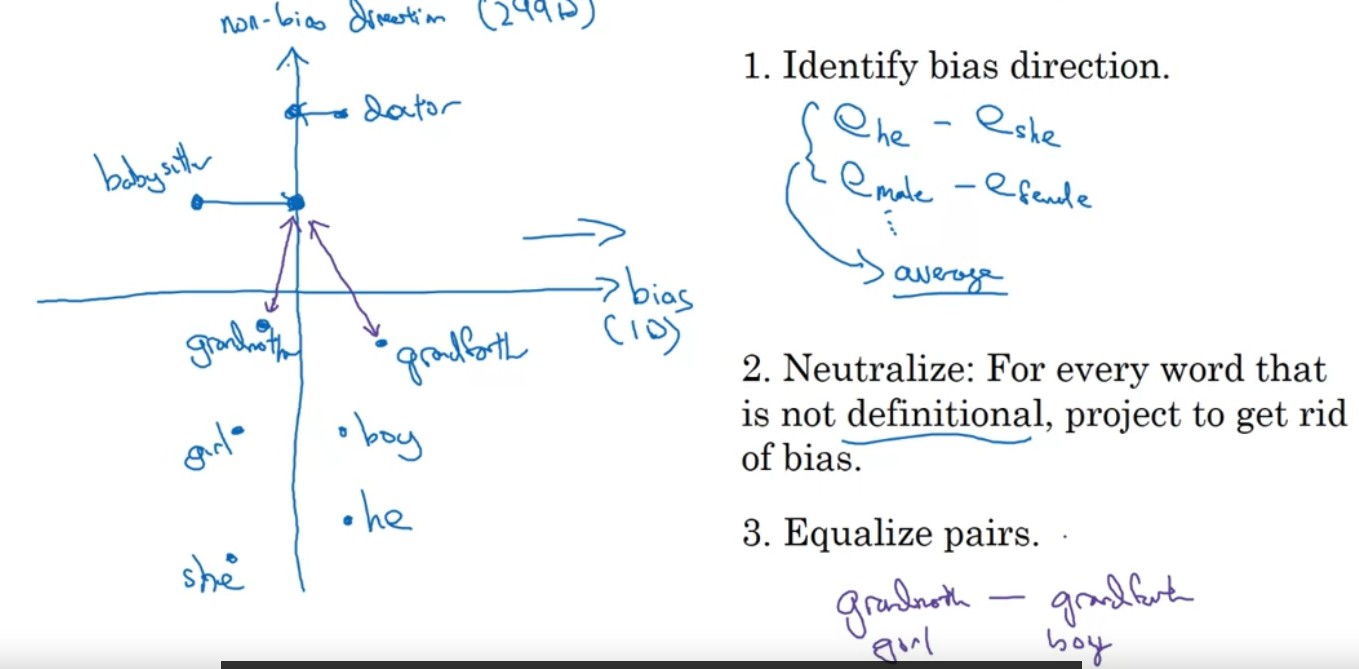 non-bias direction (299D)
doctor
babysitter
bias
(1D)
grandmoth
grandfath
girl
boy
he
she
1. Identify bias direction.
e he - e she
e male - e female
⋮
average
2. Neutralize: For every word that
is not definitional, project to get rid
of bias.
3. Equalize pairs.
grandmoth — grandfath
girl boy